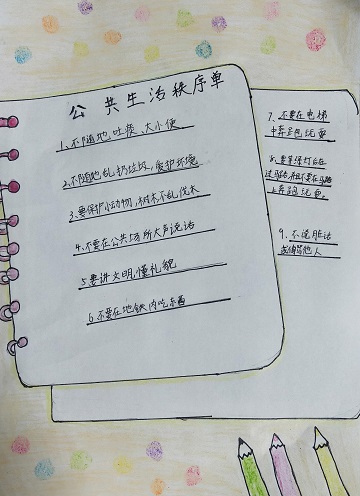 公共生活秩序单
1、不随地吐痰、大小便
2、不随地乱扔垃圾,爱护环境
3、要保护小动物,树木不乱伐木
4、不要在公共场所大声说话
5、要讲文明,懂礼貌
6、不要在地铁内吃东西
7、不要在电梯
中奔跑玩耍
8、要等绿灯后在
过马路,并不要在马路
上奔跑玩耍。
9、不说脏话
或侮辱他人